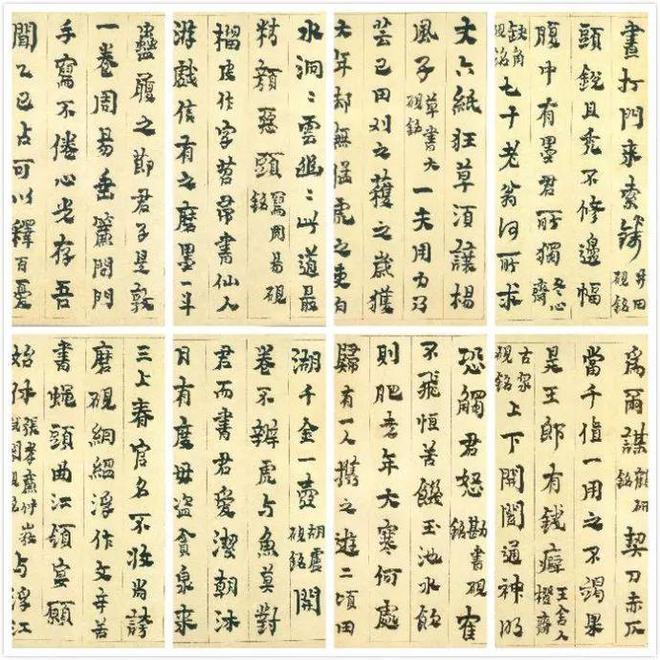 晝打門來索錢 井田硯銘
頭銳且禿不修邊幅
腹中有墨君所獨 冬心齋
缺角硯銘 七十老翁何所求
大六紙狂草須讓楊
風子 草書大硯銘 一夫用力乃
芸己田刈之穫之歲獲
大年却無猛虎之吏白
水洞〻雲幽〻此道最
精顏惡頭 寫周易硯銘
榴皮作字苕帚書仙人
游戲信有之磨墨一斗
蠱履之節君子是敦
一卷周易垂簾閉門
手寫不倦心光存吾
聞乙巳占可以釋百憂
為爾謀 硯銘 契刀赤仄
當千值一用之不竭果
是王郎有錢癖 王舍人橙齋
古泉硯銘 上下開闔通神明
恐觸君怒 勘書硯銘 寉
不飛恒苦饑玉池水飲
則肥老年大寒何處
歸有一人攜之遊二頃田
湖千金一壺 胡盧硯銘 開
卷不辨虎与魚莫對
君而書君愛潔朝沐
日有度毋盜貪泉來
三上春官名不收尚誇
磨硯網緼浮作文辛苦
書蠅頭曲江領宴願
始休 張孝廉 硯銘 与浮江